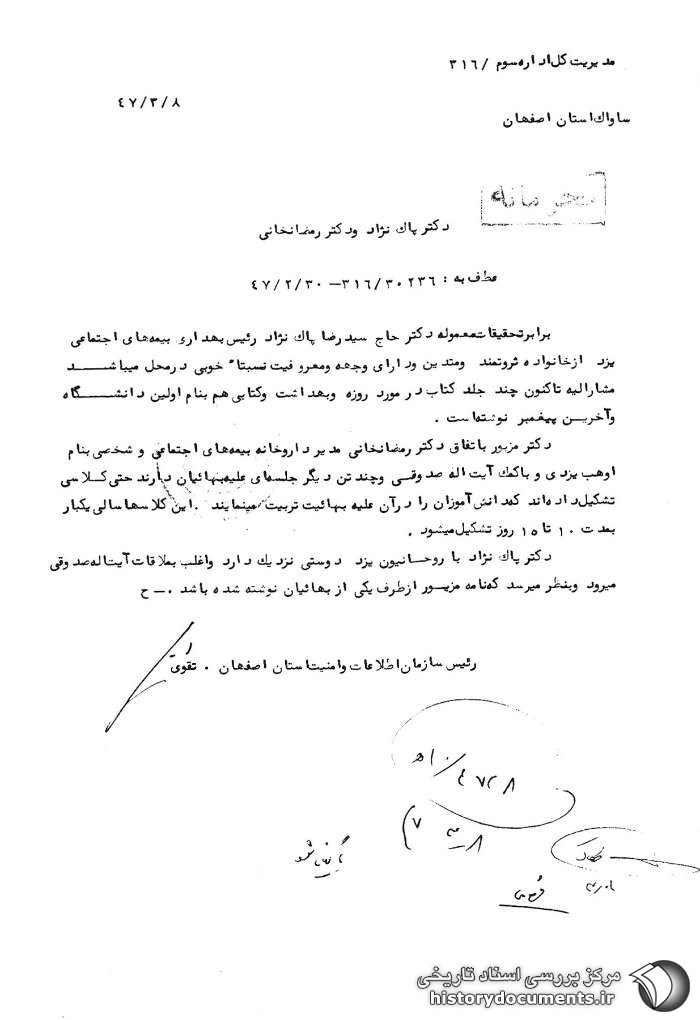 مدیریت کل اداره سوم / ۳۱۶
۴۷/۳/۸
ساواک استان اصفهان
محرمانه
دکتر پاک نژاد و دکتر رمضانخانی
عطف به : ۳۱۶/۳۰۲۳۶ – ۴۷/۲/۳۰
برابر تحقیقات معموله دکتر حاج سید رضا پاک نژاد رئیس بهداری بیمه‌های اجتماعی
یزد از خانواده ثروتمند ومتدین ودارای وجهه ومعروفیت نسبتا" خوبی در محل میباشد
مشارالیه تاکنون چند جلد کتاب در مورد روزه وبهداشت وکتابی هم بنام اولین دانشگاه
وآخرین پیغمبر نوشته‌است .
دکتر مزبور با تفاق دکتر رمضانخانی مدیر داروخانه بیمه‌های اجتماعی و شخصی بنام
اوهب یزدی و باکمک آیت اله صدوقی وچند تن دیگر جلسه‌ای علیه بهائیان دارند حتی کلاسی
تشکیل داده‌اند که دانش‌آموزان را در آن علیه بهائیت تربیت مینمایند . این کلاسها سالی یکبار
بمدت ۱۰ تا ۱۵ روز تشکیل میشود .
دکتر پاک نژاد با روحانیون یزد دوستی نزدیک دارد واغلب بملاقات آیت‌اله صدوقی
میرود وبنظر میرسد که نامه مزبور از طرف یکی از بهائیان نوشته شده باشد ۰ – ح
رئیس سازمان اطلاعات وامنیت استان اصفهان . تقوی
مرکز بررسی اسناد تاریخی
historydocuments.ir